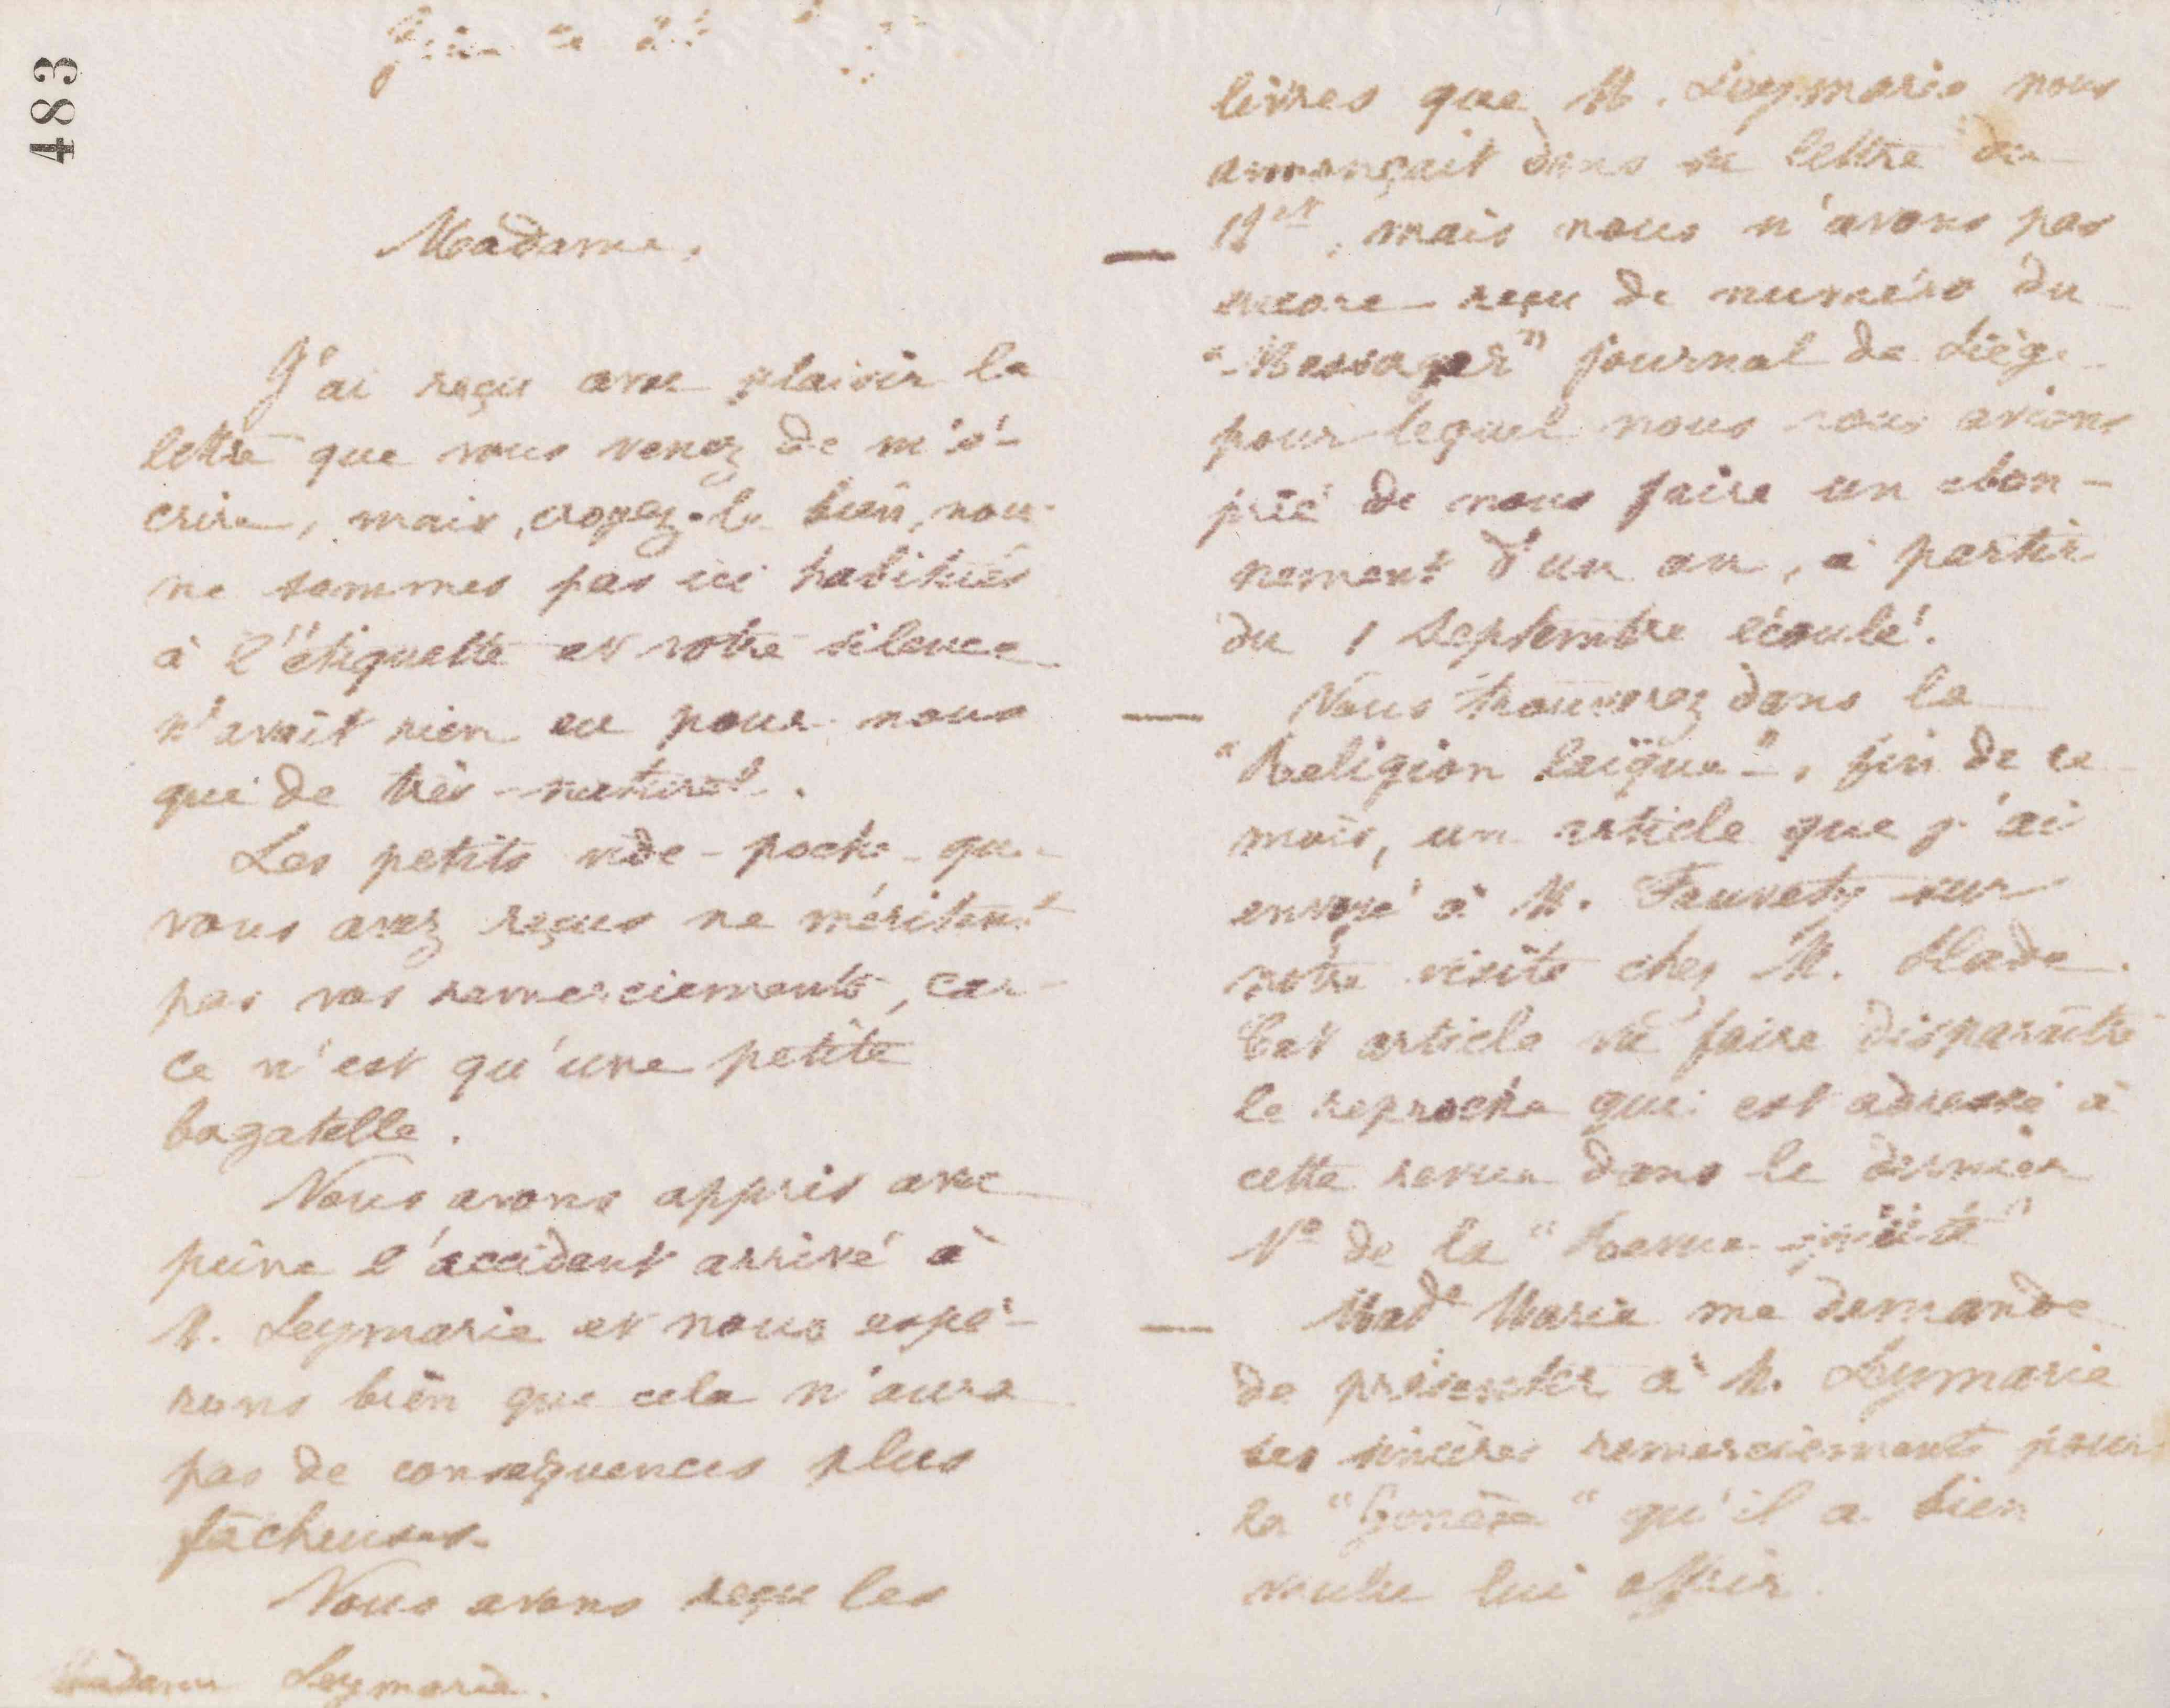 483
Madame,
J'ai reçu avec plaisir la
lettre que vous venez de m'é-
crire, mais, croyez-le bien, nous
ne sommes pas ici habitués
à l'étiquette et votre silence
n'avait rien eu pour nous
que de très-naturel.
Les petits vide-poche que
vous avez reçus ne méritent
pas vos remerciements, car
ce n'est qu'une petite
bagatelle.
Nous avons appris avec
peine l'accident arrivé à
M. Leymarie et nous espé-
rons bien que cela n'aura
pas de conséquences plus
fâcheuses.
Nous avons reçu les
Madame Leymarie.
livres que M. Leymarie nous
annonçait dans sa lettre du
mais nous n'avons pas
encore reçu de numéro du
"Messager" journal de Liège
pour lequel nous vous avions
prié de nous faire un abon-
nement d'un an, à partir
du 1 Septembre écoulé.
Vous trouverez dans la
"Religion laïque", fin de ce
mois, un article que j'ai
envoyé à M. Fauvety sur
notre visite chez M. Slade.
Cet article va faire disparaître
le reproche qui est adressé à
cette revue dans le dernier
Nº de la "Revue spirite"
Madᵉ Marie me demande
de présenter à M. Leymarie
ses sincères remerciements pour
la "Genèse" qu'il a bien
voulu lui offrir.